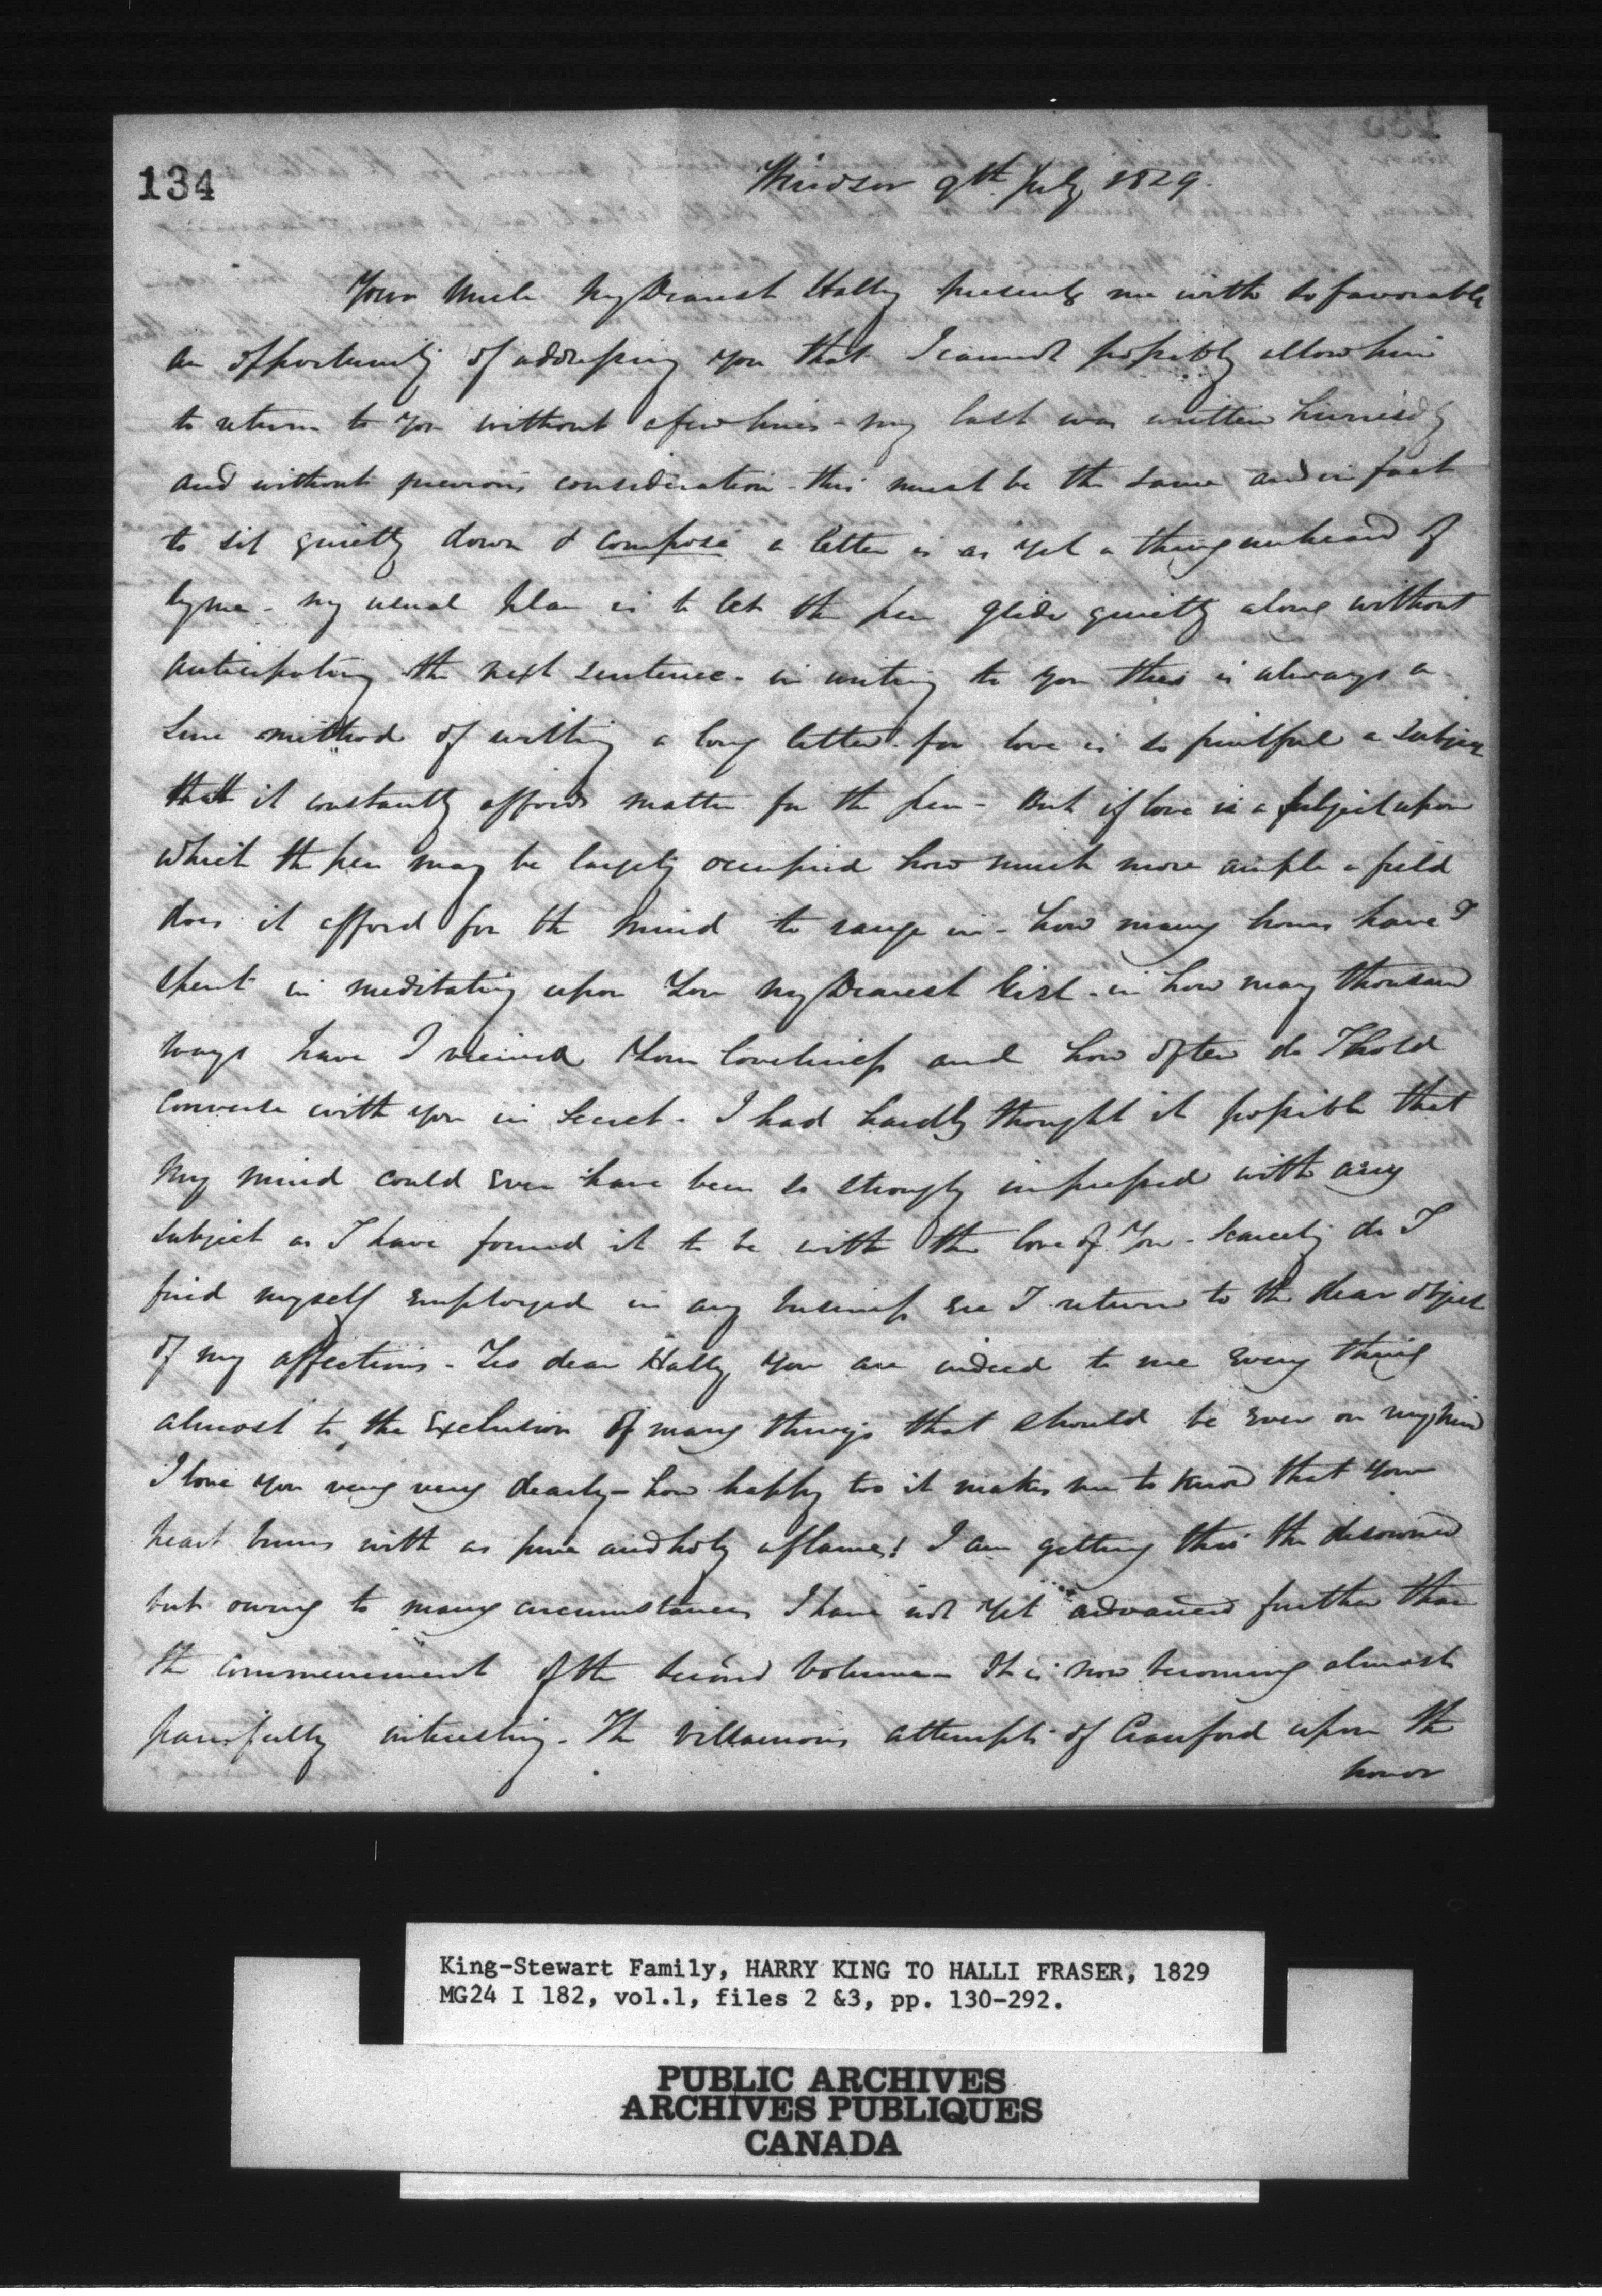 134
Windsor 9th July 1829.
Your Uncle My Dearest Hally presents me with so favorable
an opportunity of addressing you that I cannot possibly allow him
to return to you without a few lines - my last was written hurriedly
and without previous consideration - this must be the same and in fact
to sit quietly down & compose a letter is as yet a thing unheard of
by me - my usual plan is to let the pen glide quietly along without
anticipating the next sentence - in writing to you this is always a
sure method of writing a long letter - for love is so fruitful a subject
that it constantly affords matter for the pen - But if love is a subject upon
which the pen may be largely occupied how much more ample a field
does it afford for the mind to range in - how many hours have I
spent in meditating upon You My Dearest Girl - in how many thousand
ways have I viewed Your loveliness and how often do I hold
converse with you in secret - I had hardly thought it possible that
My mind could ever have been so strongly impressed with any
subject as I have found it to be with the love of You - Scarcely do I
find myself employed in any business ere I return to the dear object
of my affections - Yes dear Hally you are indeed to me every thing
almost to the exclusion of many things that should be ever on my mind
I love you very very dearly - how happy too it makes me to know that your
heart burns with as pure and holy a flame! I am getting thro' the disowned
but owing to many circumstances I have not yet advanced further than
the commencement of the second volume - It is now becoming almost
painfully interesting - The villainous attempts of Crauford upon the
honor
King-Stewart Family, HARRY KING TO HALLI FRASER, 1829
MG24 I 182, vol.1, files 2 &3, pp. 130-292.
PUBLIC ARCHIVES
ARCHIVES PUBLIQUES
CANADA